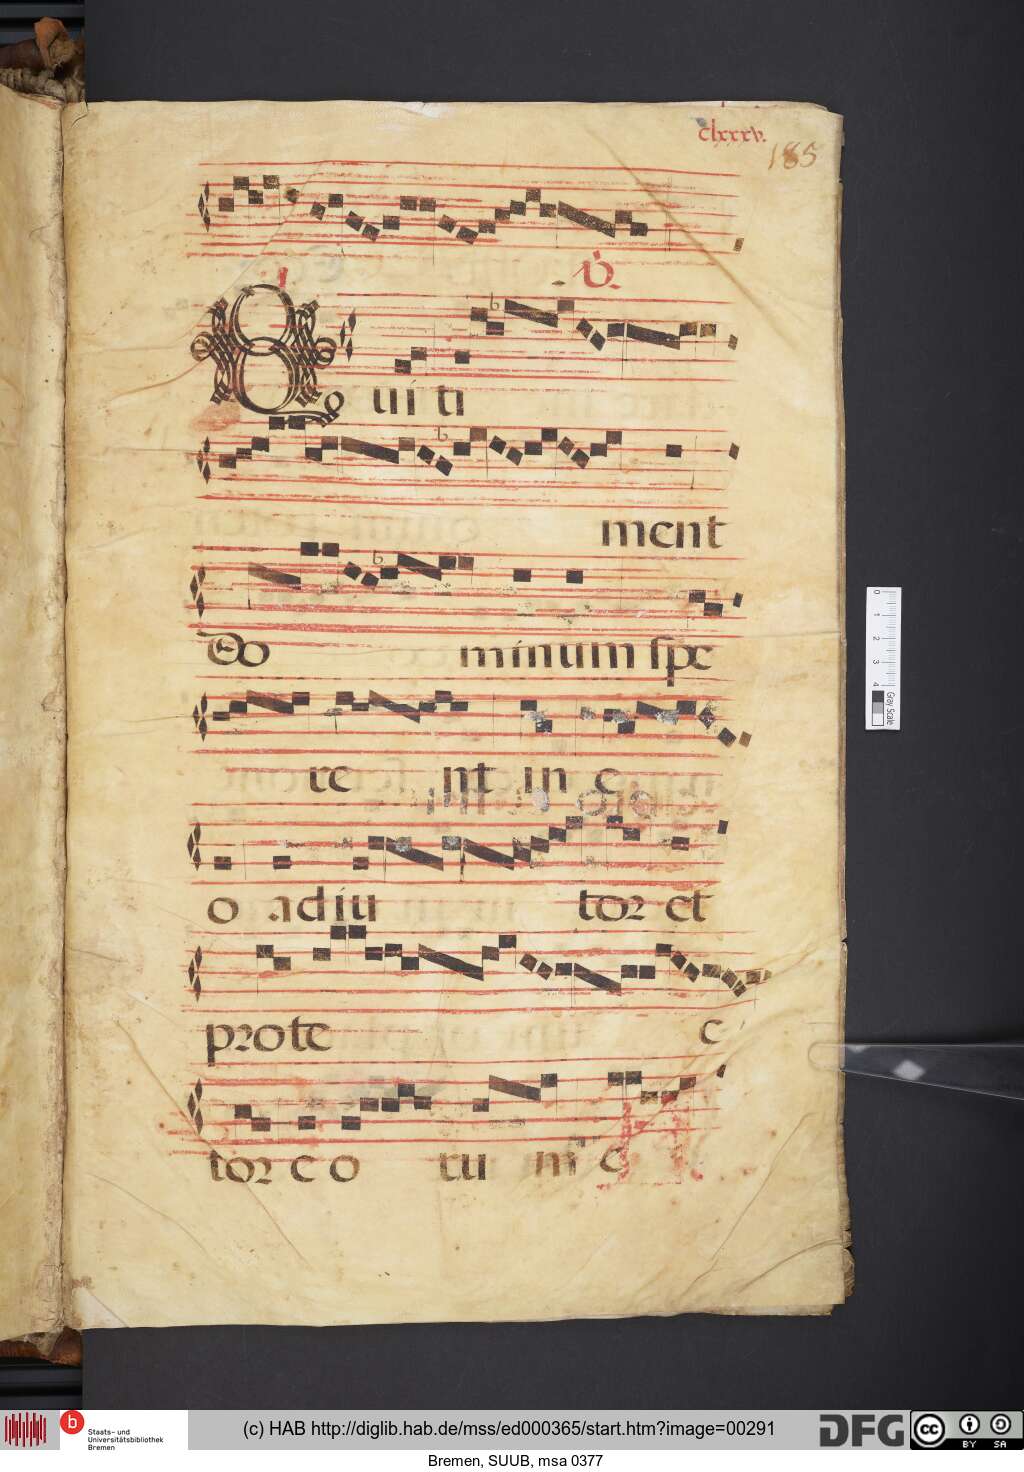 clxxxv.
185
℣.
Qui ti
ment
Do minum spe
re nt in e
o adiu tor et
prote c
tor e o ru m e
0 1 2 3 4
Gray Scale
b Staats- und
Universitätsbibliothek
Bremen
(c) HAB http://diglib.hab.de/mss/ed000365/start.htm?image=00291
DFG
cc BY SA
Bremen, SUUB, msa 0377